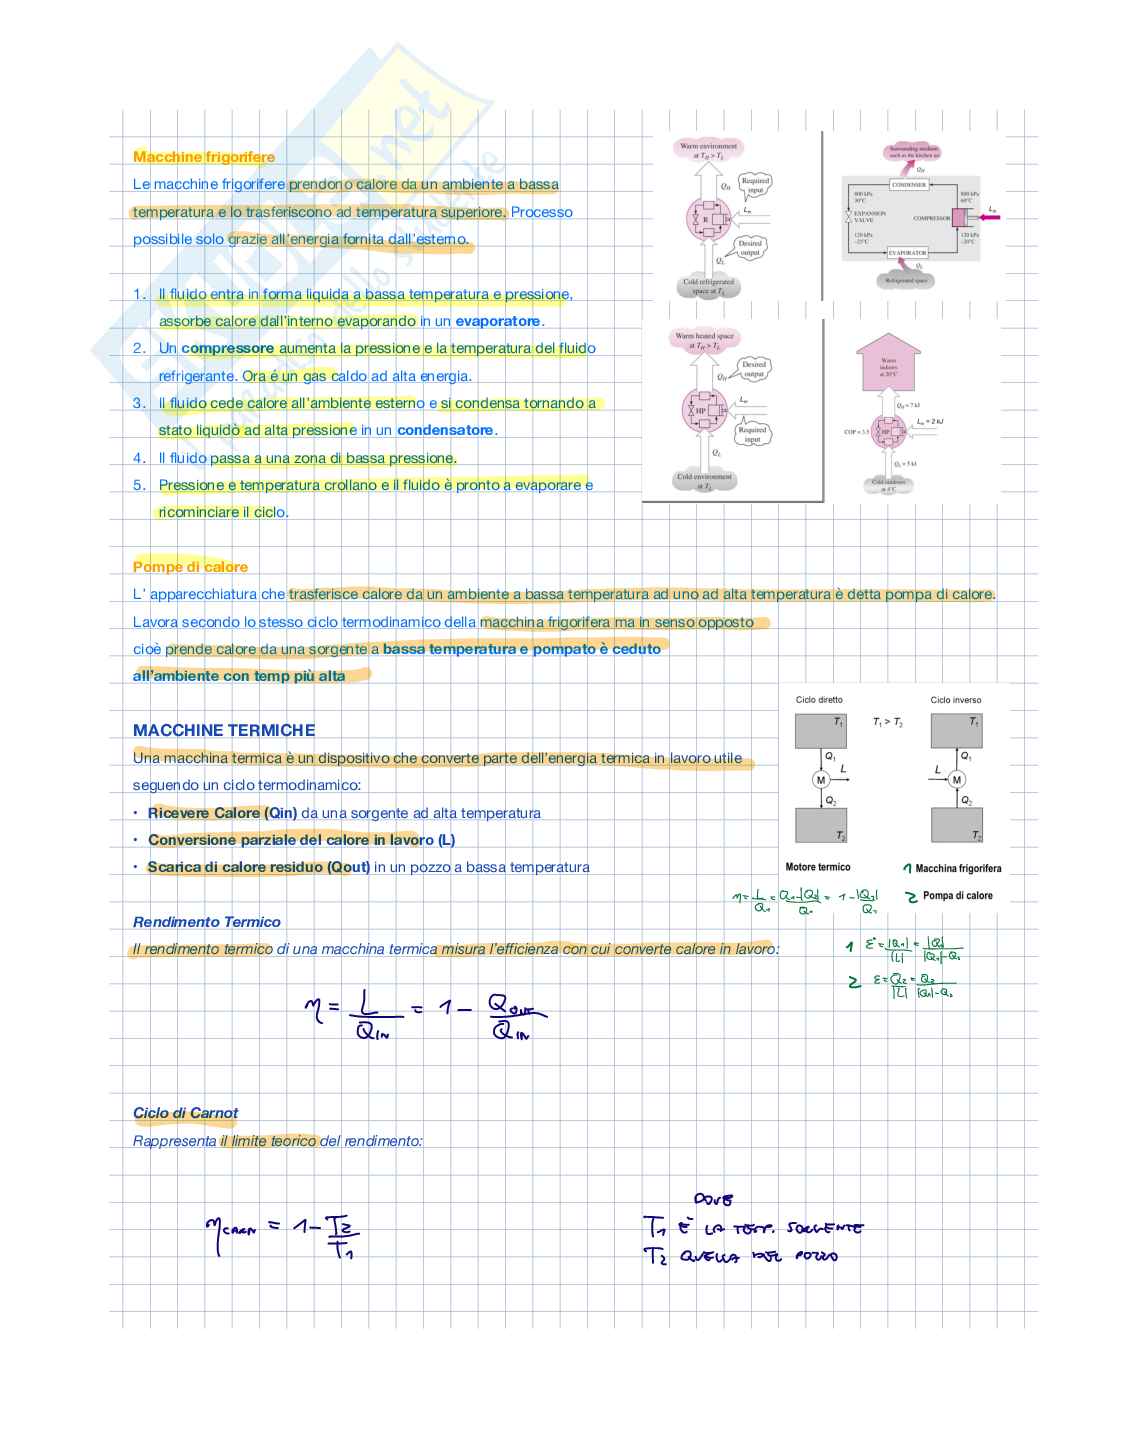 Macchine frigorifere
Le macchine frigorifere prendono calore da un ambiente a bassa
temperatura e lo trasferiscono ad temperatura superiore. Processo
possibile solo grazie all'energia fornita dall'esterno.
1. Il fluido entra in forma liquida a bassa temperatura e pressione,
assorbe calore dall'interno evaporando in un evaporatore.
2. Un compressore aumenta la pressione e la temperatura del fluido
refrigerante. Ora é un gas caldo ad alta energia.
3. Il fluido cede calore all'ambiente esterno e si condensa tornando a
stato liquido ad alta pressione in un condensatore.
4. Il fluido passa a una zona di bassa pressione.
5. Pressione e temperatura crollano e il fluido è pronto a evaporare e
ricominciare il ciclo.
Warm environment
at T_H > T_L
Q_H
Required
input
R
L_in
Desired
output
Q_L
Cold refrigerated
space at T_L
Surrounding medium
such as the kitchen air
Q_H
CONDENSER
800 kPa
30°C
800 kPa
60°C
EXPANSION
VALVE
COMPRESSOR
L_in
120 kPa
-25°C
120 kPa
-20°C
EVAPORATOR
Q_L
Refrigerated space
Warm heated space
at T_H > T_L
Q_H
Desired
output
HP
L_in
Required
input
Q_L
Cold environment
at T_L
Warm
indoors
at 20°C
Q_H = 7 kJ
L_in = 2 kJ
COP = 3.5
HP
Q_L = 5 kJ
Cold outdoors
at 4°C
Pompe di calore
L' apparecchiatura che trasferisce calore da un ambiente a bassa temperatura ad uno ad alta temperatura è detta pompa di calore.
Lavora secondo lo stesso ciclo termodinamico della macchina frigorifera ma in senso opposto
cioè prende calore da una sorgente a bassa temperatura e pompato è ceduto
all'ambiente con temp più alta
MACCHINE TERMICHE
Una macchina termica è un dispositivo che converte parte dell'energia termica in lavoro utile
seguendo un ciclo termodinamico:
• Ricevere Calore (Qin) da una sorgente ad alta temperatura
• Conversione parziale del calore in lavoro (L)
• Scarica di calore residuo (Qout) in un pozzo a bassa temperatura
Ciclo diretto
Ciclo inverso
T₁
T₁ > T₂
T₁
Q₁
Q₁
M
L
L
M
Q₂
Q₂
T₂
T₂
Motore termico
1 Macchina frigorifera
2 Pompa di calore
η = L/Q₁ = Q₁-|Q₂|/Q₁ = 1-|Q₂|/Q₁
Rendimento Termico
Il rendimento termico di una macchina termica misura l'efficienza con cui converte calore in lavoro:
1 ε* = |Q₁|/|L| = |Q₁|/|Q₁|-Q₂
2 ε = Q₂/|L| = Q₂/|Q₁|-Q₂
η = L/Q_IN = 1 - Q_OUT/Q_IN
Ciclo di Carnot
Rappresenta il limite teorico del rendimento:
η_CARN = 1 - T₂/T₁
DOVE
T₁ È LA TEMP. SORGENTE
T₂ QUELLA DEL POZZO